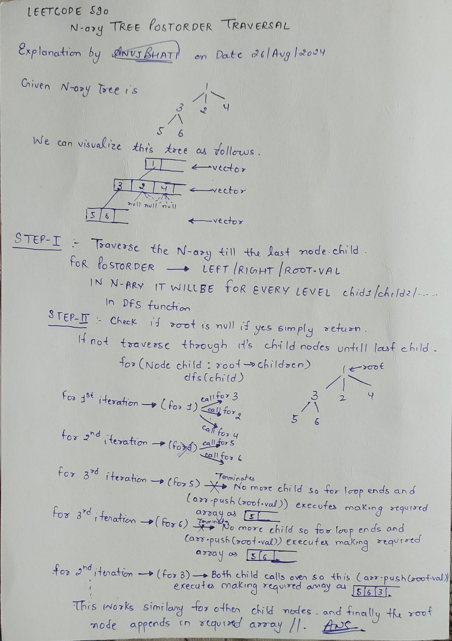 LEETCODE 590
N-ary TREE POSTORDER TRAVERSAL
Explanation by ANUJ BHATI on Date 26/Aug/2024
Given N-ary Tree is
1
3 2 4
5 6
We can visualize this tree as follows.
1 ← vector
3 2 4 ← vector
null null null
5 6 ← vector
STEP-I :- Traverse the N-ary till the last node child.
FOR POSTORDER → LEFT/RIGHT/ROOT-VAL
IN N-ARY IT WILL BE FOR EVERY LEVEL child1/child2/.....
In DFS function
STEP-II :- Check if root is null if yes simply return.
If not traverse through it's child nodes untill last child.
for (Node child : root → children)
dfs(child)
1 ← root
3 2 4
5 6
For 1st iteration → (for 1) call for 3
call for 2
call for 4
For 2nd iteration → (for 3) call for 5
call for 6
For 3rd iteration → (for 5) Terminates → No more child so for loop ends and
(arr.push(root-val)) executes making required
array as 5
For 3rd iteration → (For 6) Terminates → No more child so for loop ends and
(arr.push(root-val)) executes making required
array as 5 6
For 2nd iteration → (for 3) → Both child calls over so this (arr-push(root-val))
executes making required array as 5 6 3.
This works similary for other child nodes. and finally the root
node appends in required array //. Ans